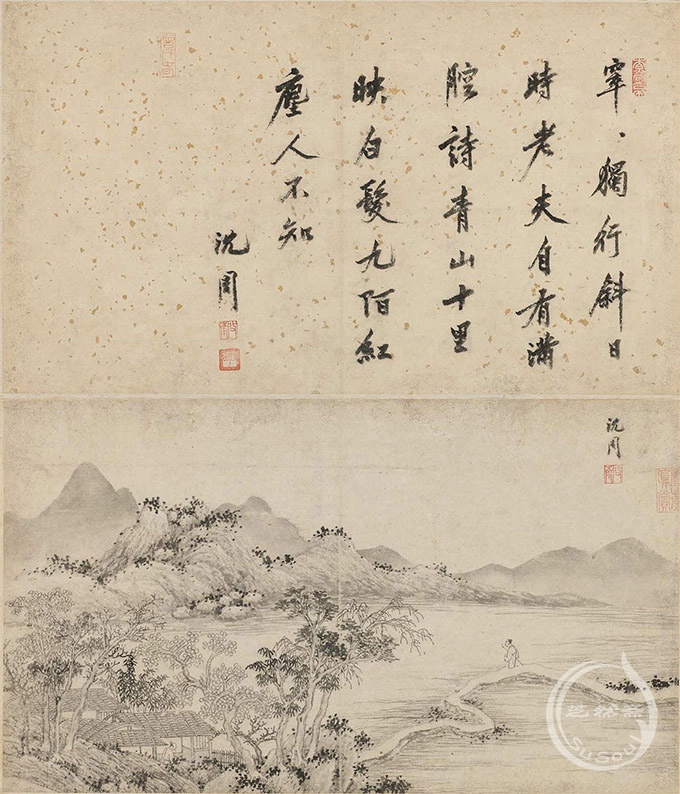 窣〻獨行斜日
時老夫自有滿
腔詩青山十里
映白髮九陌紅
塵人不知
沈周
沈周
SuSoul